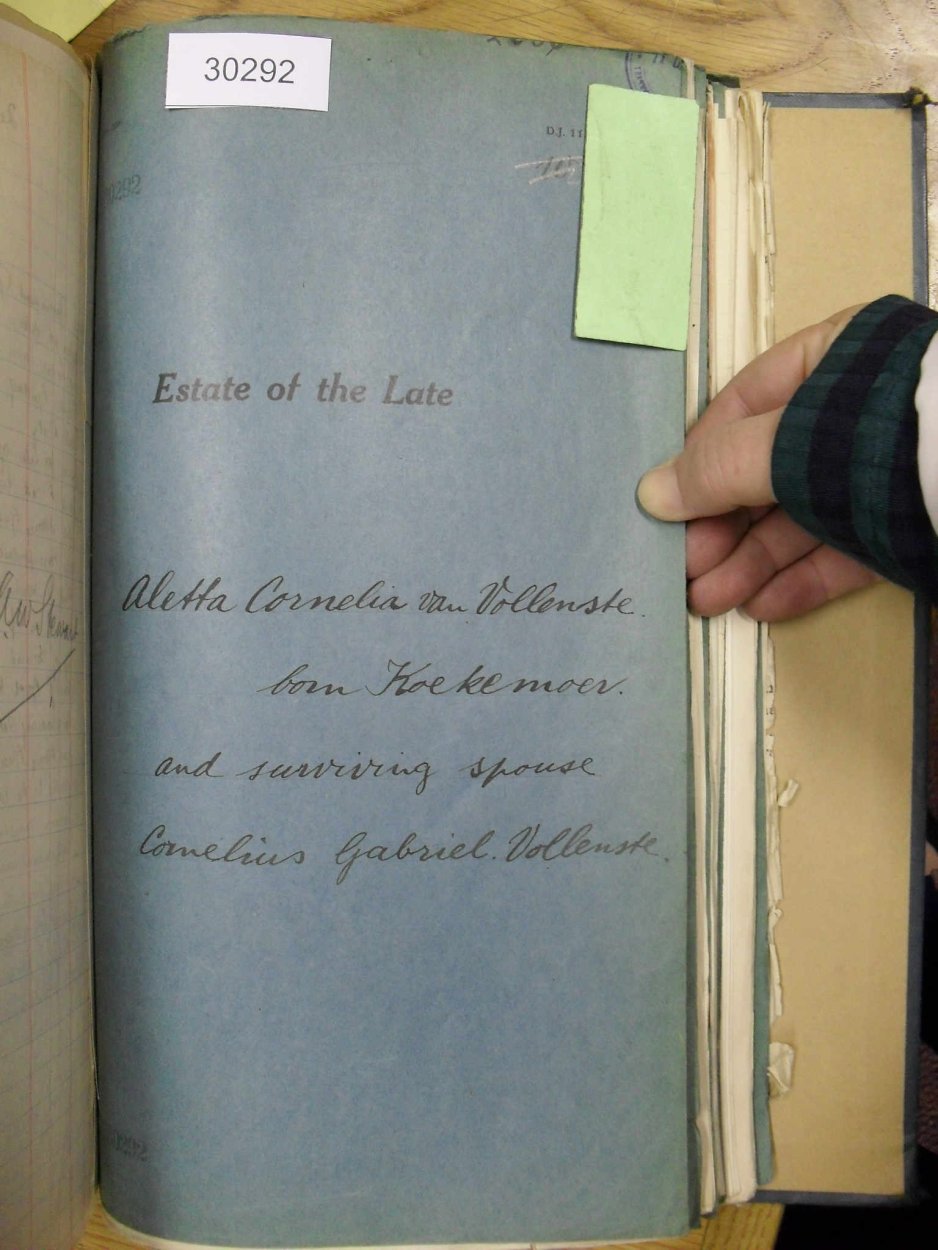 30292
D.J. 11
0292
Estate of the Late
Aletta Cornelia van Vollenste.
born Koekemoer.
and surviving spouse
Cornelius Gabriel. Vollenste.
0292